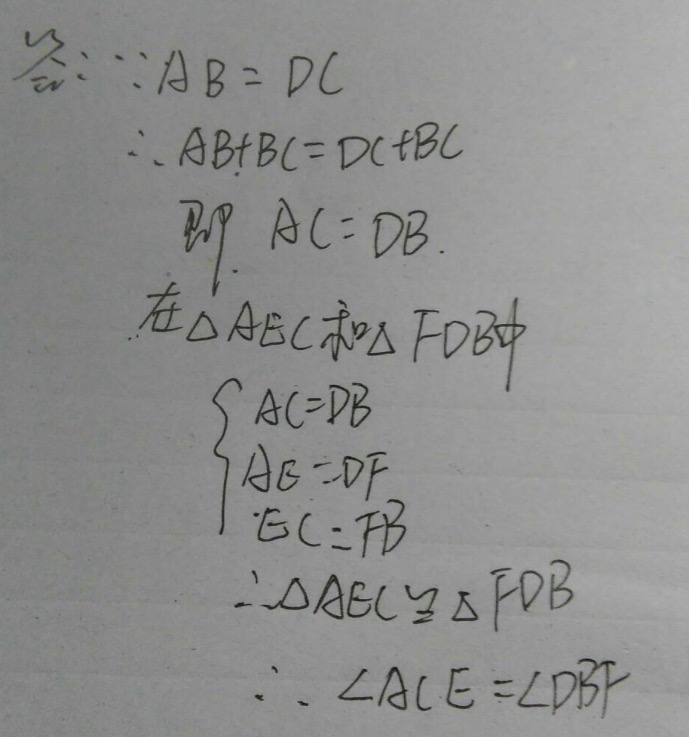 答:∵AB=DC
∴AB+BC=DC+BC
即 AC=DB.
在△AEC和△FDB中
AC=DB
AE=DF
EC=FB
∴△AEC≌△FDB
∴∠ACE=∠DBF